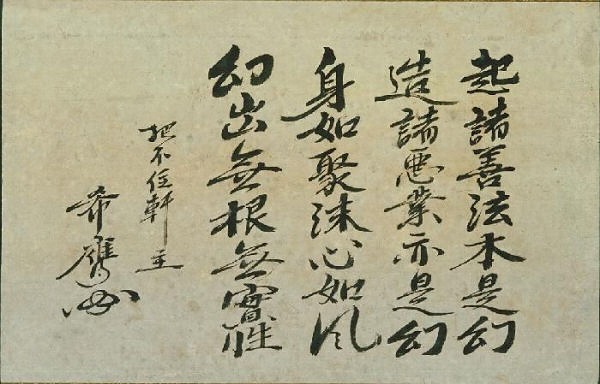 起諸善法本是幻
造諸悪業亦是幻
身如聚沫心如風
幻出無根無實性
把不住軒主
希膺書